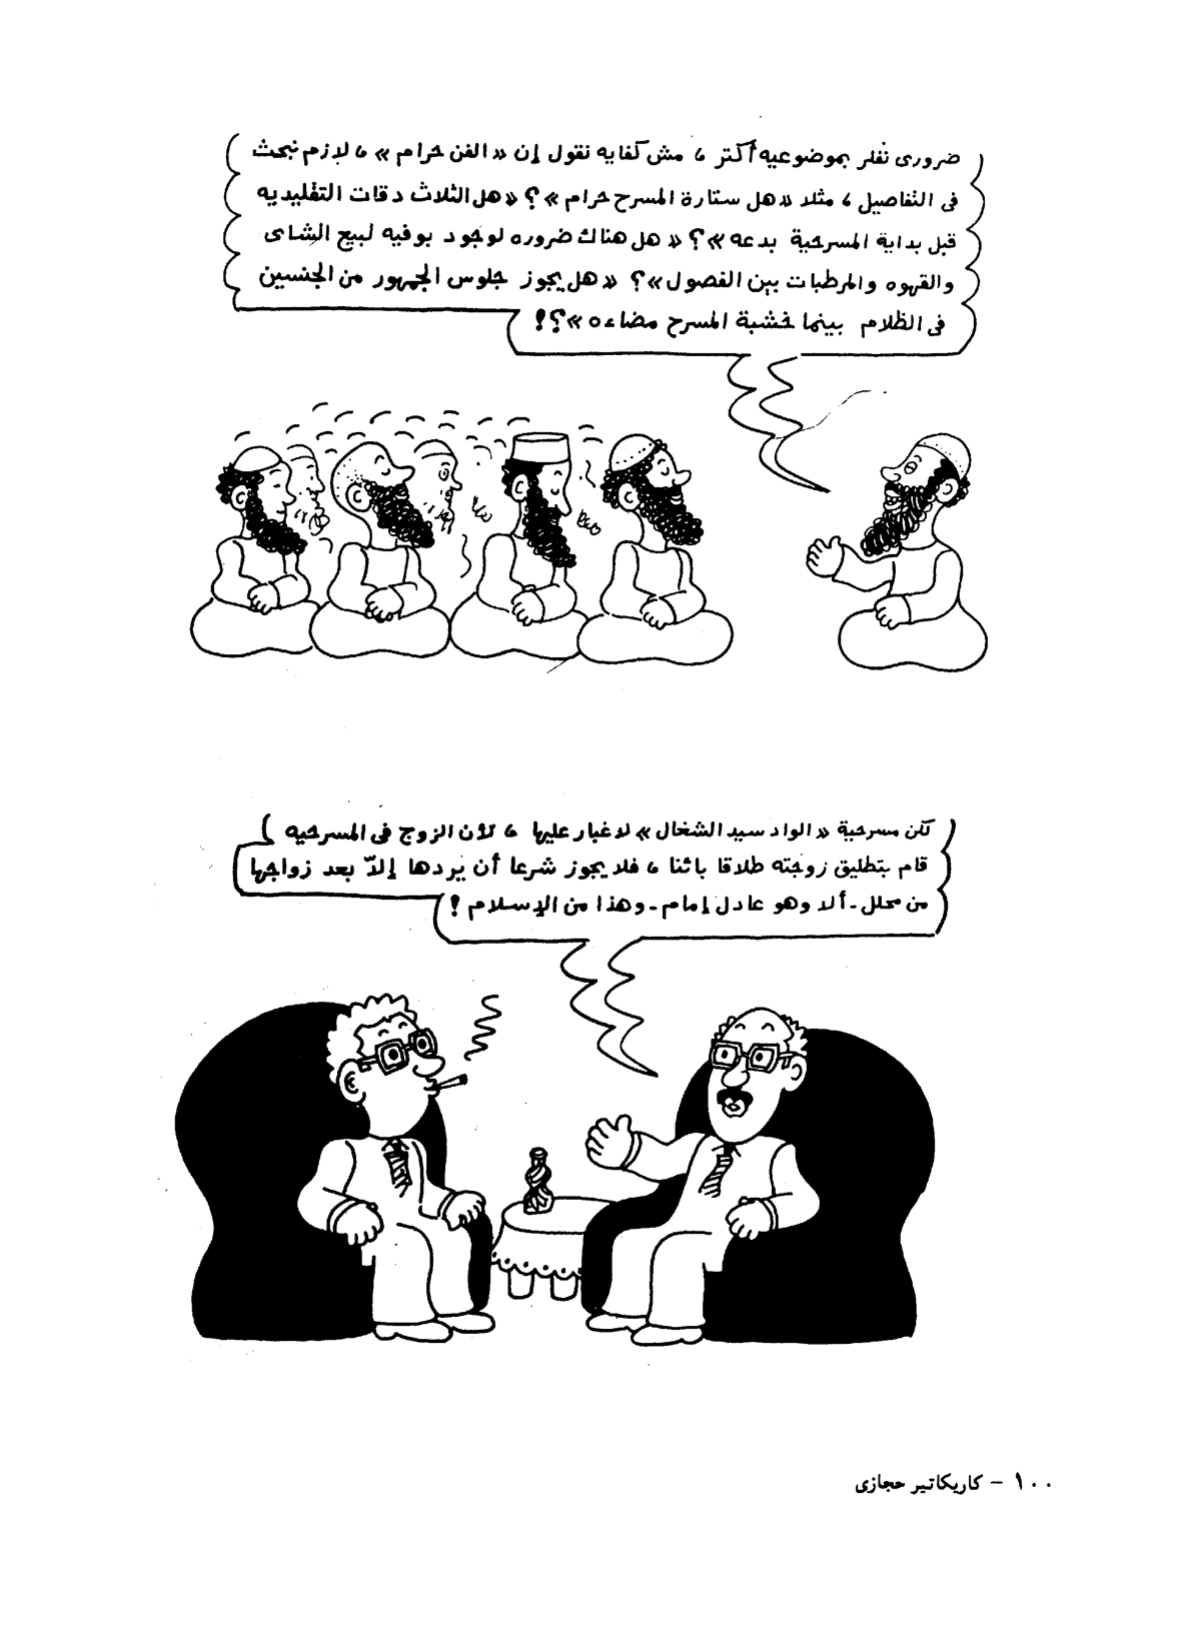 ضرورى نفكر بموضوعيه أكتر ، مش كفايه نقول إن «الفن حرام» ، لازم نبحث
فى التفاصيل ، مثلا «هل ستارة المسرح حرام»؟ «هل الثلاث دقات التقليديه
قبل بداية المسرحية بدعه»؟ «هل هناك ضروره لوجود بوفيه لبيع الشاى
والقهوه والمرطبات بين الفصول»؟ «هل يجوز جلوس الجمهور من الجنسين
فى الظلام بينما خشبة المسرح مضاءه»؟!
لكن مسرحية «الواد سيد الشغال» لا غبار عليها ، لأن الزوج فى المسرحيه
قام بتطليق زوجته طلاقا بائنا ، فلا يجوز شرعا أن يردها إلاّ بعد زواجها
من محلل - ألا وهو عادل إمام - وهذا من الإسلام !
١٠٠ – كاريكاتير حجازى